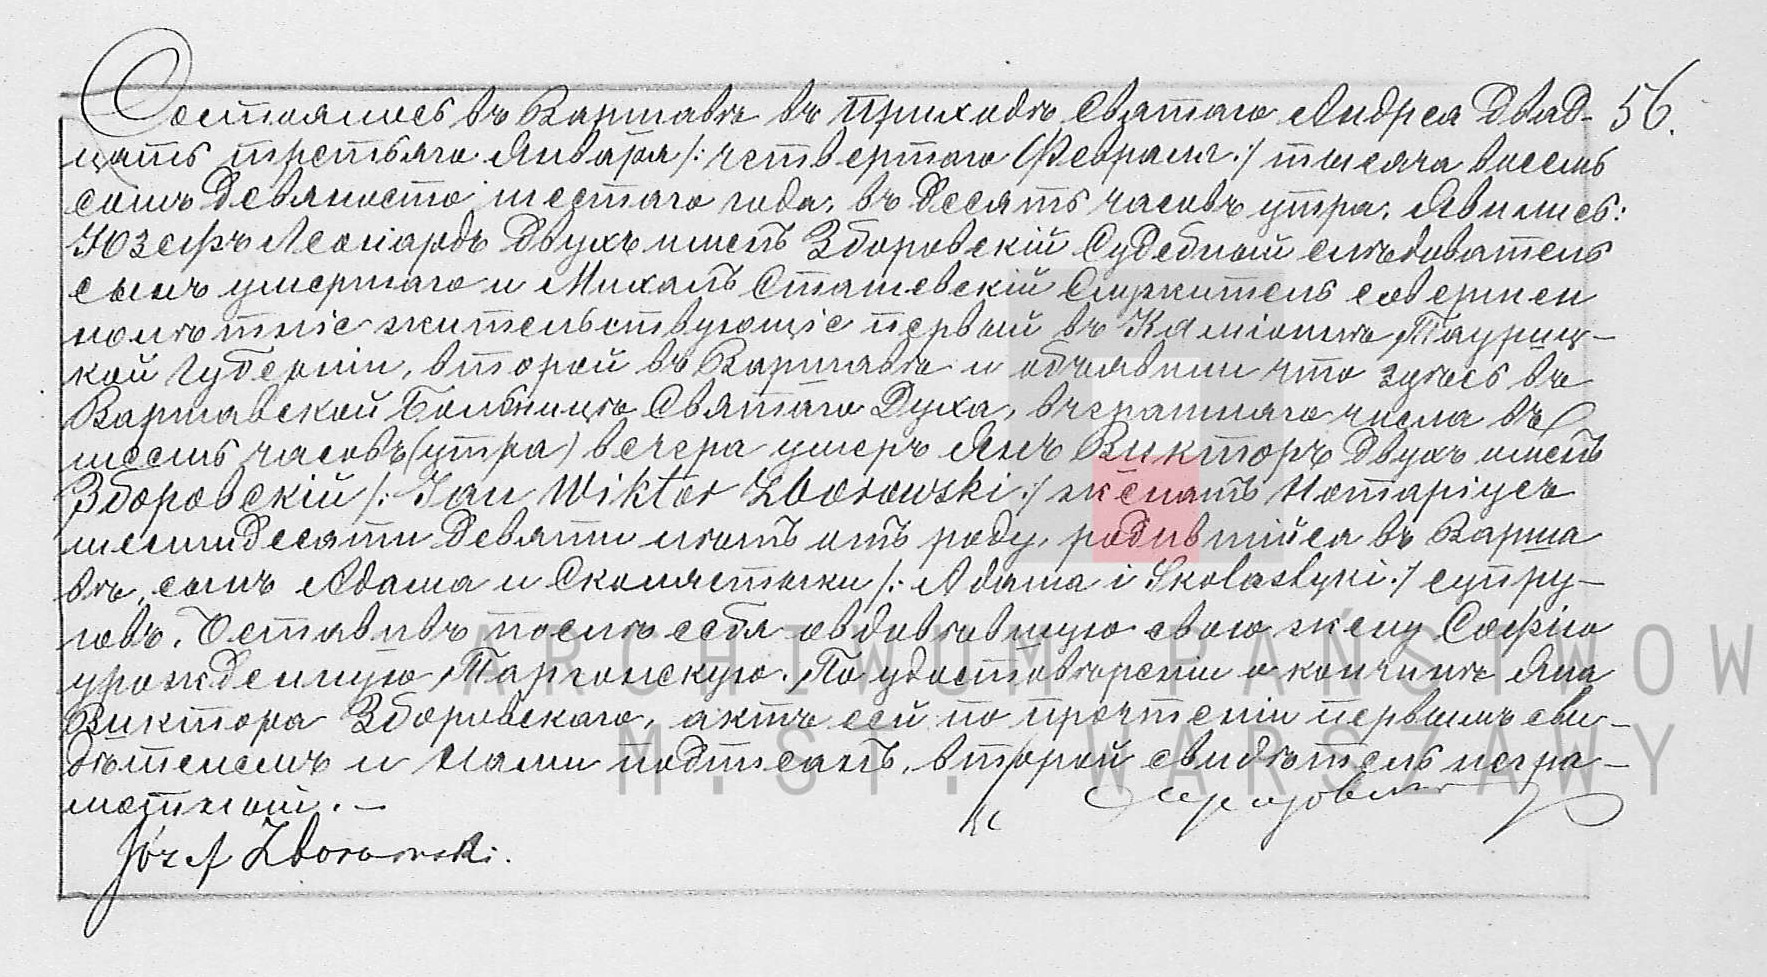 Состоялось въ Варшавѣ въ приходѣ Святаго Андрея двад- 56.
цать третьяго Января /: четвертаго Февраля :/ тысяча восемь
сотъ девяносто шестаго года, въ десять часовъ утра. Явились:
Юзефъ Леонардъ двухъ именъ Зборовскій Судебный слѣдователь
сынъ умершаго и Михалъ Сташевскій Служитель совершен
нолѣтніе жительствующіе первый въ Таурец-
кой губерніи, второй въ Варшавѣ и объявили что здѣсь въ
Варшавской Больницѣ Святаго Духа, вчерашняго числа въ
шесть часовъ (утра) вечера умеръ Янъ Викторъ двухъ именъ
Зборовскій /: Jan Wiktor Zborowski :/ женатъ Нотаріусъ
шестидесяти девяти лѣтъ отъ роду, родившійся въ Варша
вѣ, сынъ Адама и Схоластыки /: Adama i Skolastyki :/ супру-
говъ. Оставивъ послѣ себя овдовѣвшую свою жену Софію
урожденную Таргонскую. По удостовѣреніи о кончинѣ Яна
Виктора Зборовскаго, актъ сей по прочтеніи первымъ сви-
дѣтелемъ и Нами подписанъ, второй свидѣтель негра-
мотный. —
Józef Zborowski.
ARCHIWUM PAŃSTWOW
M.ST. WARSZAWY